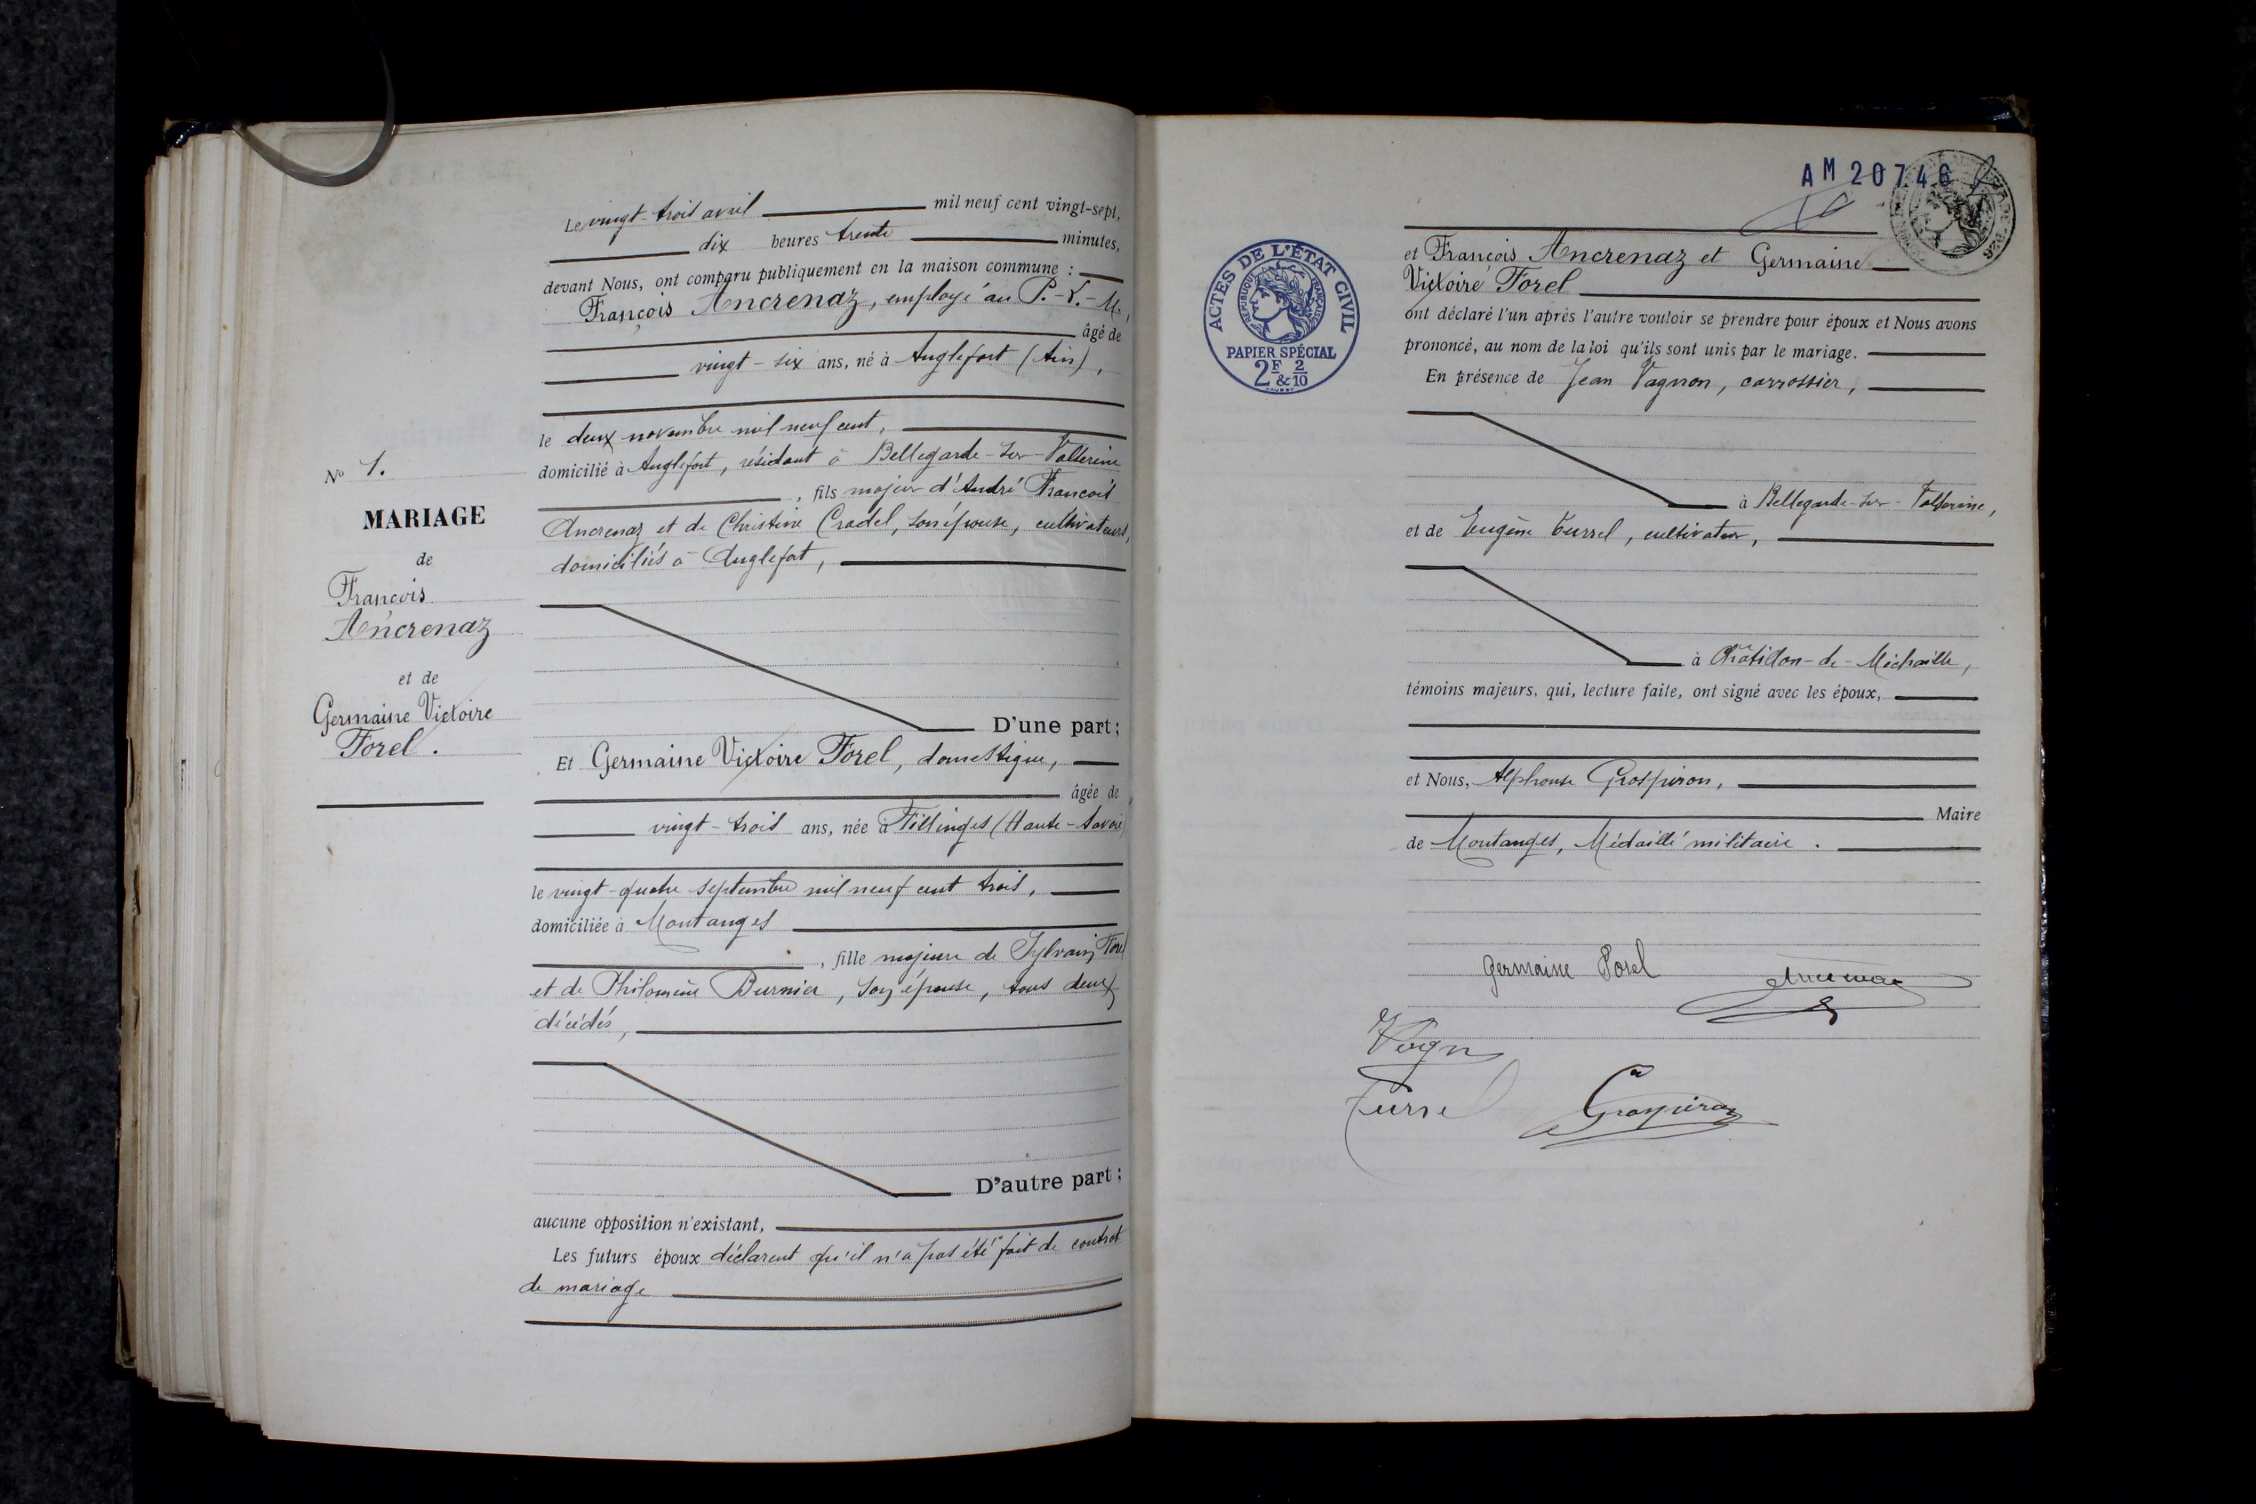 Le vingt-trois avril mil neuf cent vingt-sept,
dix heures trente minutes,
devant Nous, ont comparu publiquement en la maison commune :
François Ancrenaz, employé au P.-L.-M.,
âgé de
vingt-six ans, né à Anglefort (Ain),
le deux novembre mil neuf cent,
domicilié à Anglefort, résidant à Bellegarde-sur-Valserine
, fils majeur d'André François
Ancrenaz et de Christine Cradel, son épouse, cultivateurs,
domiciliés à Anglefort,
D'une part ;
Et Germaine Victoire Forel, domestique,
âgée de
vingt-trois ans, née à Fillinges (Haute-Savoie)
le vingt-quatre septembre mil neuf cent trois,
domiciliée à Montanges
, fille majeure de Sylvain Forel
et de Philomène Burnier, son épouse, tous deux
décédés,
D'autre part ;
aucune opposition n'existant,
Les futurs époux déclarent qu'il n'a pas été fait de contrat
de mariage
No 1.
MARIAGE
de
François
Ancrenaz
et de
Germaine Victoire
Forel.
AM 20746
ACTES DE L'ÉTAT CIVIL
RÉPUBLIQUE FRANÇAISE
PAPIER SPÉCIAL
2F & 2/10
et François Ancrenaz et Germaine
Victoire Forel
ont déclaré l'un après l'autre vouloir se prendre pour époux et Nous avons
prononcé, au nom de la loi qu'ils sont unis par le mariage.
En présence de Jean Vagnon, carrossier,
à Bellegarde-sur-Valserine,
et de Eugène Tursel, cultivateur,
à Châtillon-de-Michaille,
témoins majeurs, qui, lecture faite, ont signé avec les époux,
et Nous, Alphonse Grospiron,
Maire
de Montanges, Médaillé militaire.
Germaine Forel
Ancrenaz
Tursel
Grospiron